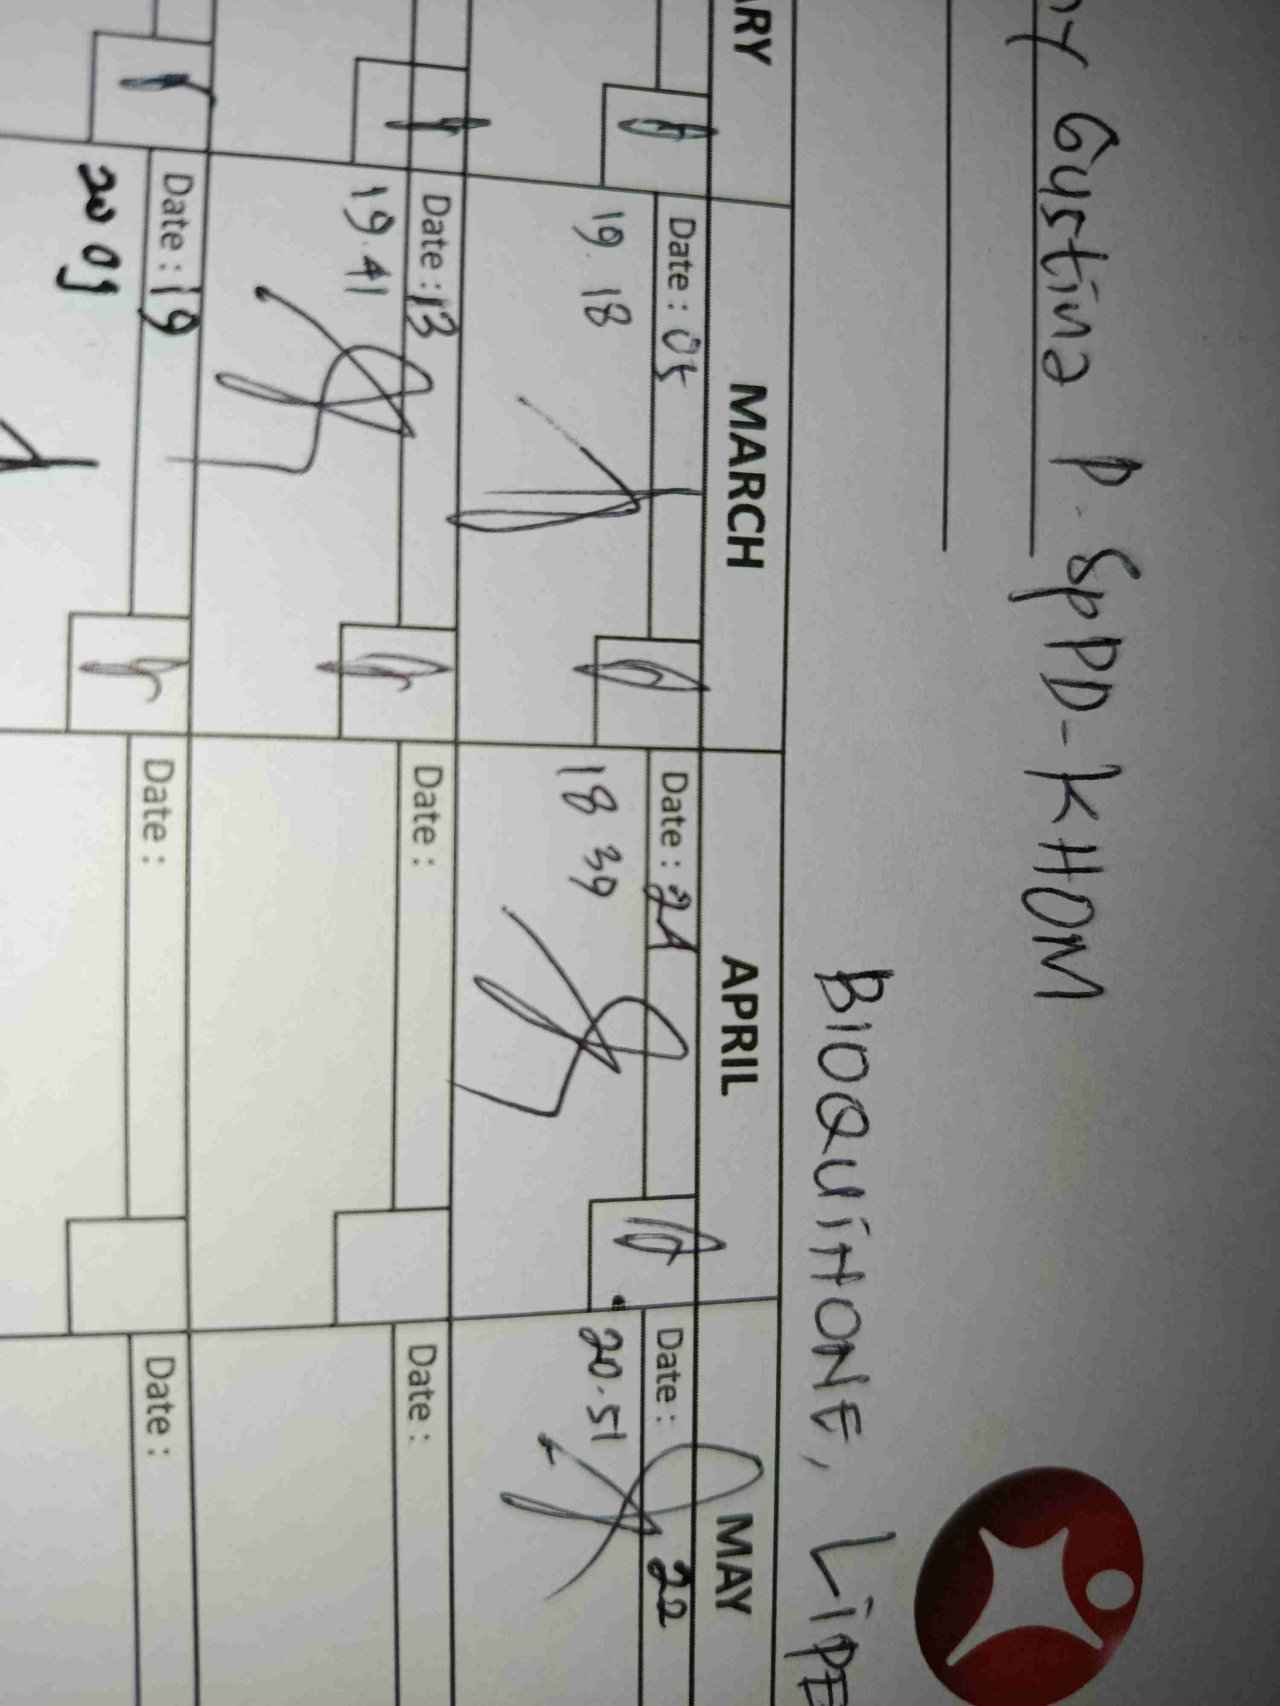 Gustina P. SpPD-KHOM
BIOQUiNONE, LiPE
ARY MARCH APRIL MAY
Date : 05 Date : 24 Date : 22
19. 18 18 39 20.51
Date : 13 Date : Date :
19.41
Date : 19 Date : Date :
20 09